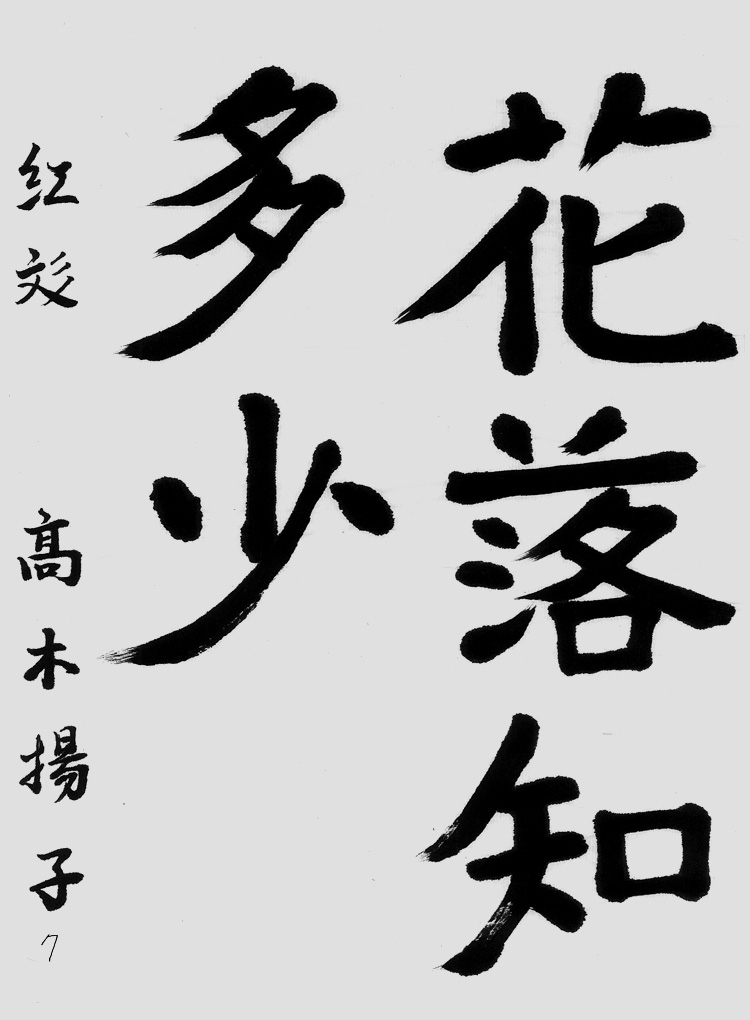 花落知
多少
高木揚子
7